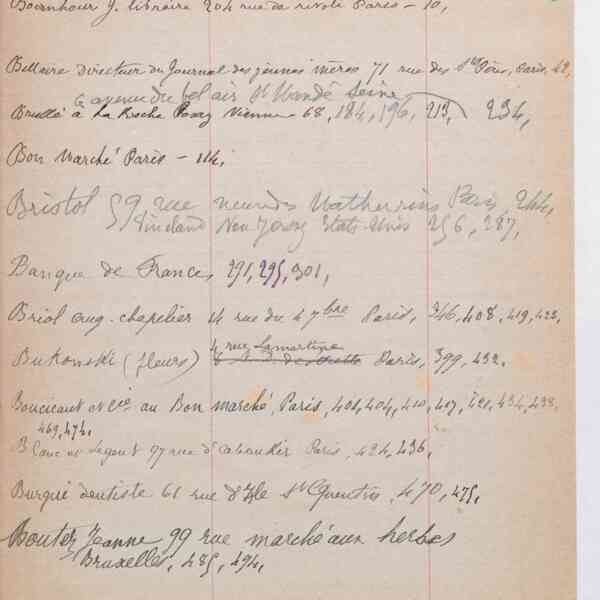 J. libraire 204 rue de rivoli Paris - 10,
Directeur du Journal des jeunes mères 71 rue des Sts Pères, Paris, 42,
6 avenue du bel air St Mandé Seine
Brullé à La Roche Posay Vienne - 68, 184, 196, 213, 234,
Bon Marché Paris - 114,
Bristol 59 rue neuve des Mathurins Paris, 244,
Vineland New Jersey Etats-Unis 256, 287,
Banque de France, 291, 295, 301,
Briol aug. chapelier 14 rue du 4 7bre Paris, 346, 408, 419, 423,
4 rue Lamartine
Bukonski (fleurs) Paris, 399, 432,
Boucicaut et cie au Bon marché, Paris, 401, 404, 410, 417, 421, 434, 438,
469, 474,
Blanc et 97 rue d' Paris, 424, 436,
Burgué dentiste 61 rue d' St Quentin, 470, 475,
Boutez Jeanne 99 rue marché aux herbes
Bruxelles, 485, 494,